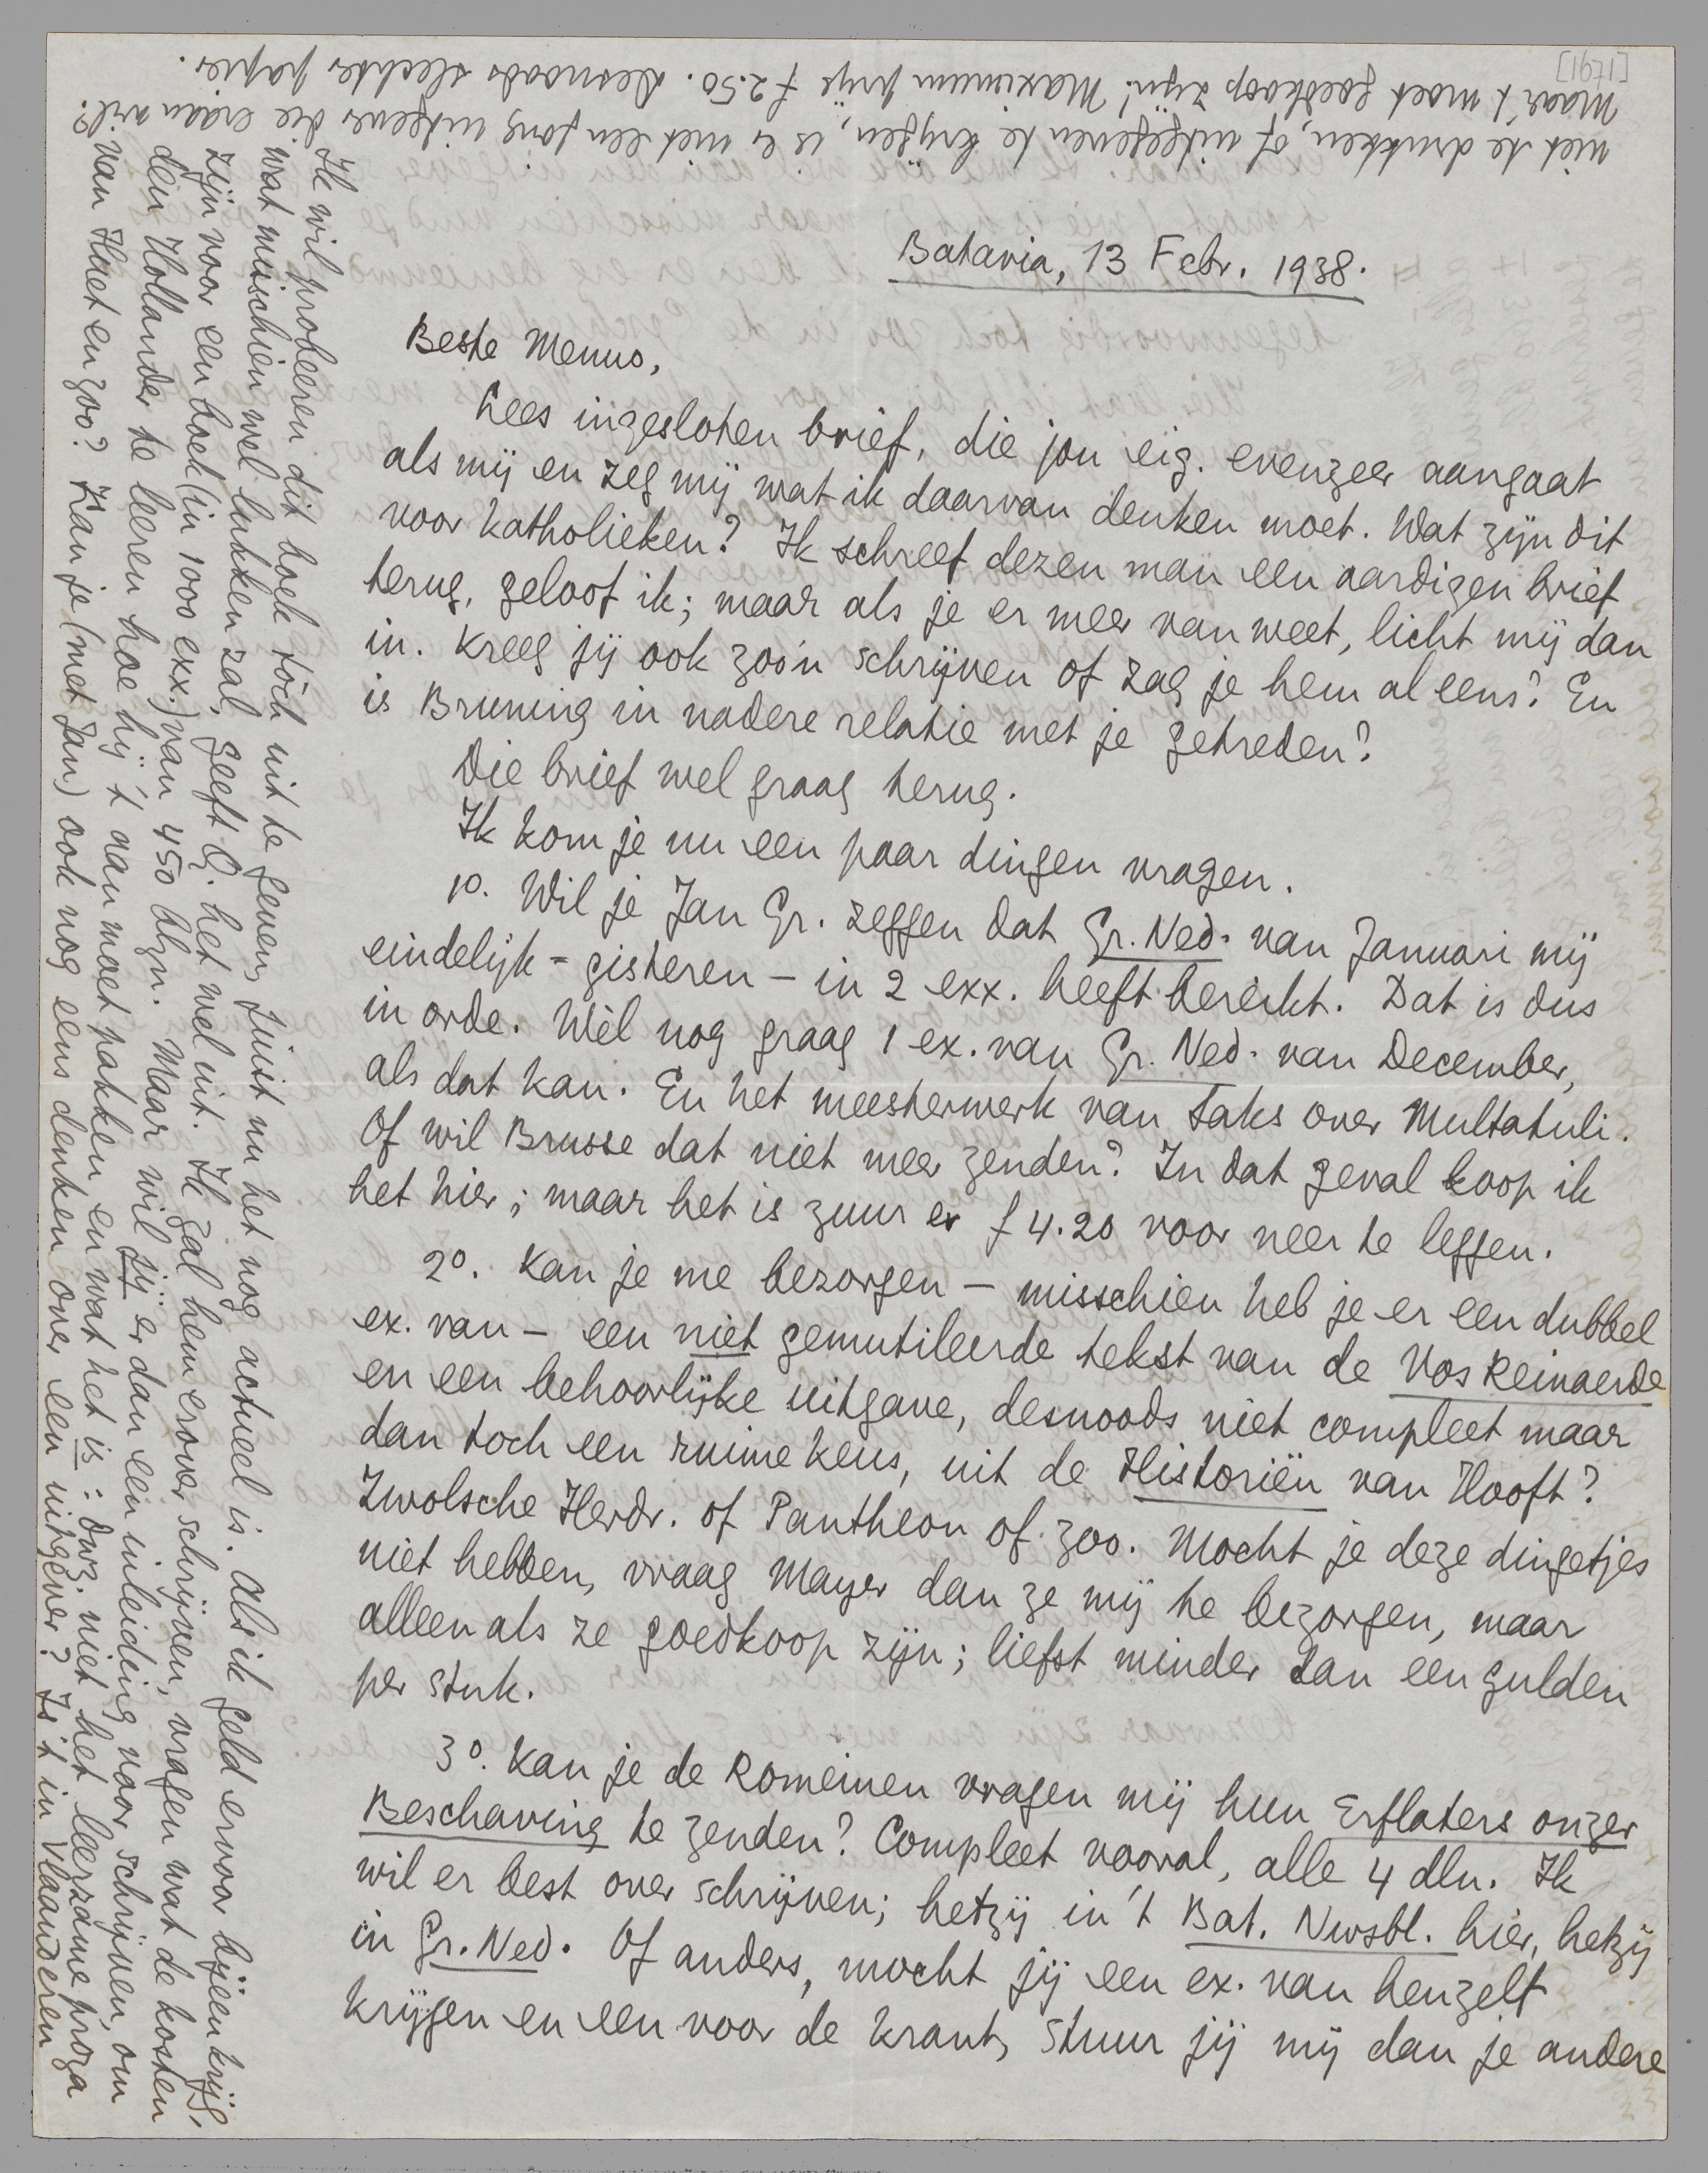 [1791]
Batavia, 13 Febr. 1938.
Beste Menno,
Lees ingesloten brief, die jou eig. evenzeer aangaat
als mij en zeg mij wat ik daarvan denken moet. Wat zijn dit
voor katholieken? Ik schreef dezen man een aardigen brief
terug, geloof ik; maar als je er meer van weet, licht mij dan
in. Kreeg jij ook zoo'n schrijven of zag je hem al eens? En
is Bruning in nadere relatie met je getreden?
Die brief wel graag terug.
Ik kom je nu een paar dingen vragen.
1o. Wil je Jan Gr. zeggen dat Gr. Ned. van Januari mij
eindelijk - gisteren - in 2 exx. heeft bereikt. Dat is dus
in orde. Wèl nog graag 1 ex. van Gr. Ned. van December,
als dat kan. En het meesterwerk van Saks over Multatuli.
Of wil Brusse dat niet meer zenden? In dat geval koop ik
het hier; maar het is zuur er f 4.20 voor neer te leggen.
2o. Kan je me bezorgen - misschien heb je er een dubbel
ex. van - een niet gemutileerde tekst van de Vos Reinaerde
en een behoorlijke uitgave, desnoods niet compleet maar
dan toch een ruime keus, uit de Historiën van Hooft?
Zwolsche Herdr. of Pantheon of zoo. Mocht je deze dingetjes
niet hebben, vraag Mayer dan ze mij te bezorgen, maar
alleen als ze goedkoop zijn; liefst minder dan een gulden
per stuk.
3o. Kan je de Romeinen vragen mij hun Erflaters onzer
Beschaving te zenden? Compleet vooral, alle 4 dln. Ik
wil er best over schrijven; hetzij in 't Bat. Nwsbl. hier, hetzij
in Gr. Ned. Of anders, mocht jij een ex. van henzelf
krijgen en een voor de krant, stuur jij mij dan je andere
Ik wil probeeren dit boek tòch uit te geven, juist nu het nog actueel is. Als ik geld ervoor bijeenkrijg,
wat misschien wel lukken zal, geeft Q. het wel uit. Ik zal hem erover schrijven, vragen wat de kosten
zijn voor een boek (in 1000 exx.) van 450 blzn. Maar wil jij er dan een inleiding voor schrijven, om
den Hollander te leeren hoe hij 't aan moet pakken en wat het is: dwz. niet het leerzame proza
van Haet en zoo? Kan je (met Jan) ook nog eens denken over een uitgever? Is 't in Vlaanderen
niet te drukken, of uitgegeven te krijgen, is er niet een jong uitgever die eraan wil?
Maar 't moet goedkoop zijn! Maximum prijs f 2.50. Desnoods slechter papier.